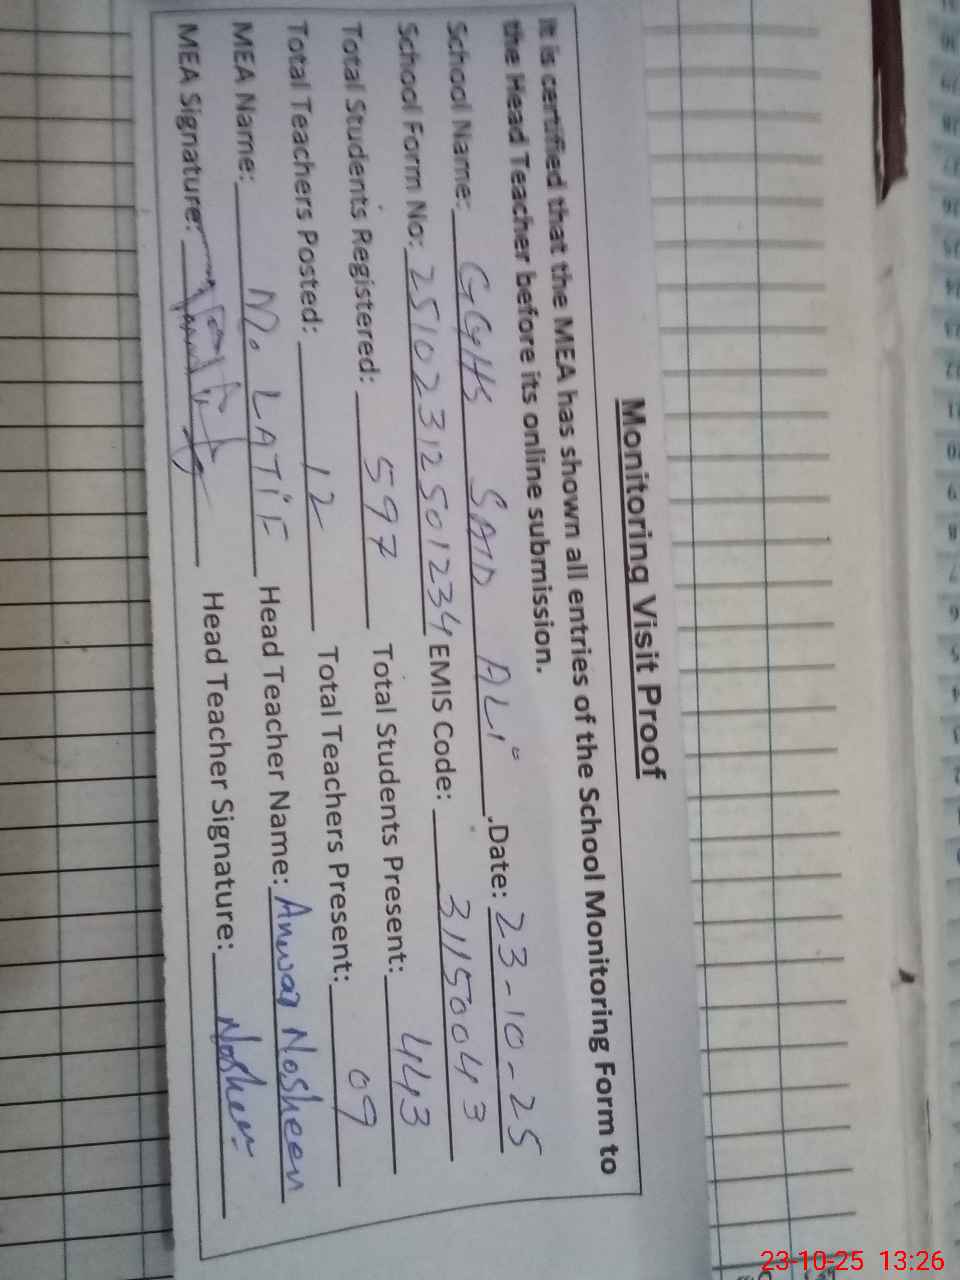 Monitoring Visit Proof
It is certified that the MEA has shown all entries of the School Monitoring Form to
the Head Teacher before its online submission.
School Name: GGHS SAID ALI .Date: 23-10-25
School Form No: 25102312501234 EMIS Code: 31150043
Total Students Registered: 597 Total Students Present: 443
Total Teachers Posted: 12 Total Teachers Present: 09
MEA Name: M. LATIF Head Teacher Name: Anwar Nosheen
MEA Signature: Head Teacher Signature: Nosheen
23-10-25 13:26